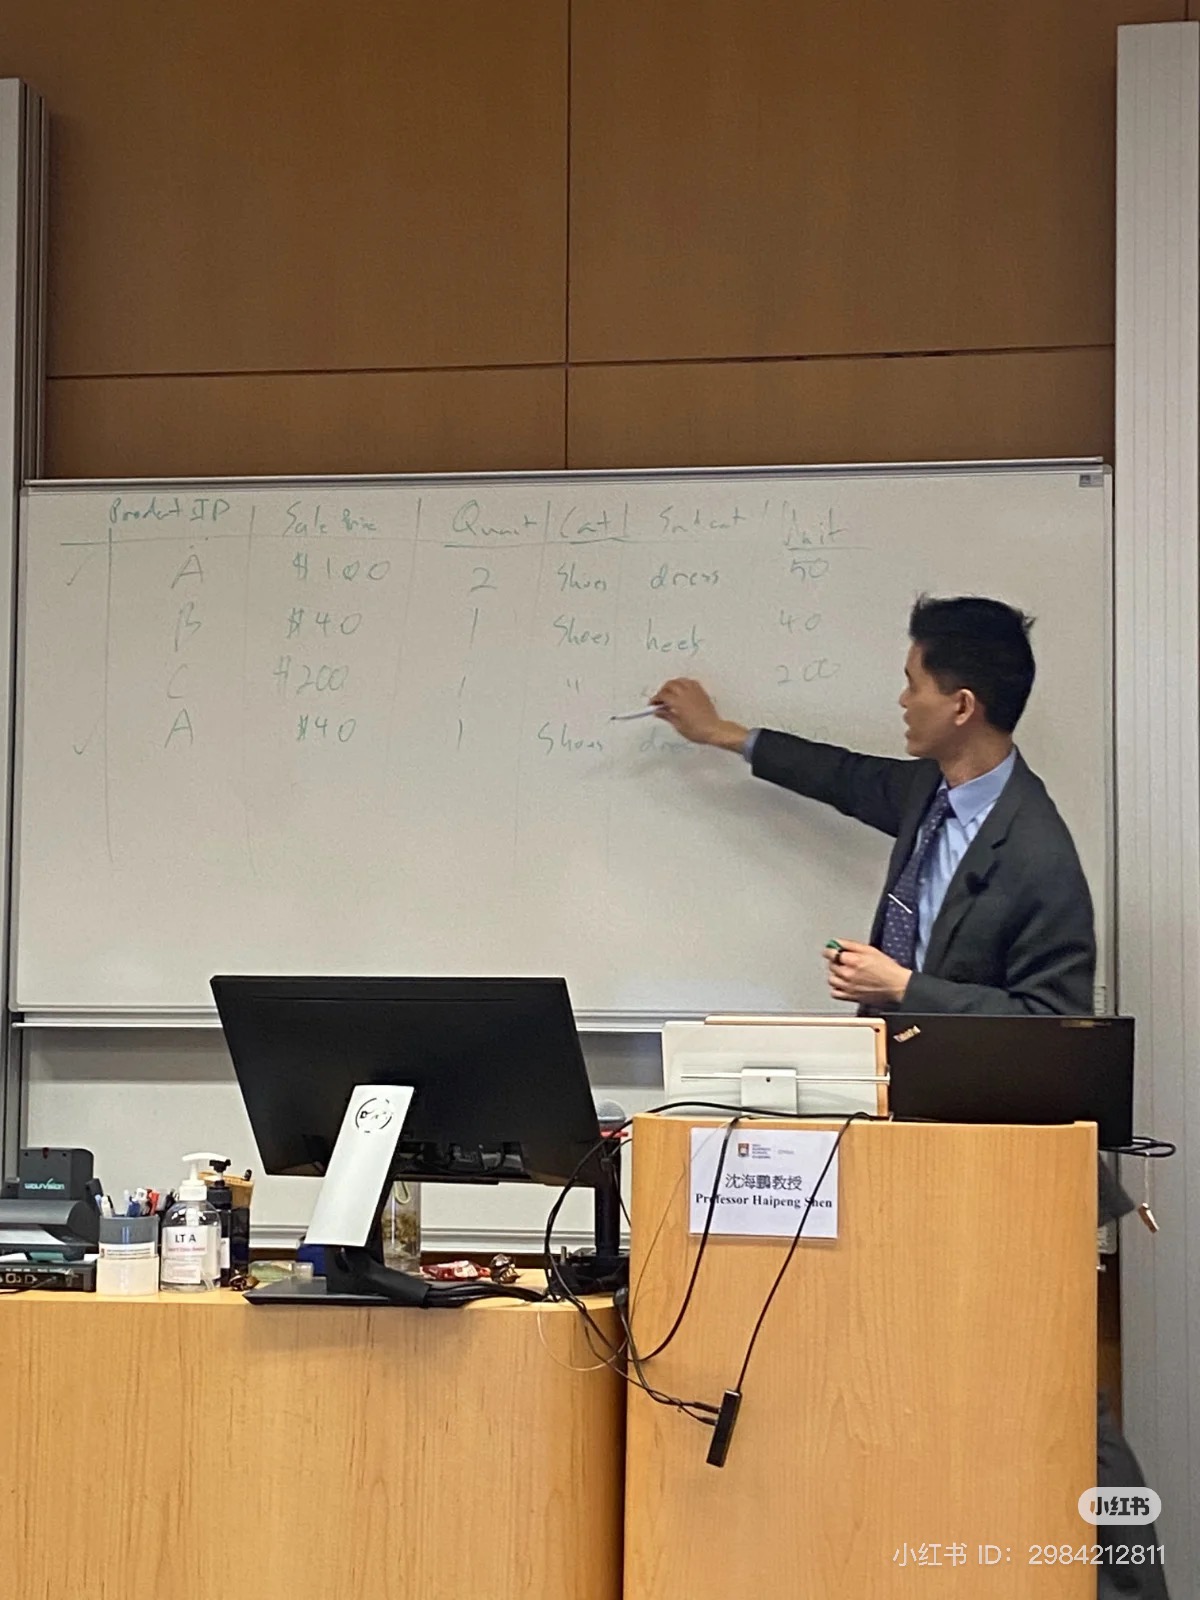 Product ID Sale Price Quant Cat Subcat Unit
A $100 2 Shoes dress 50
B $40 1 Shoes heels 40
C $200 1 " 200
A $40 1 Shoes
wolfvision
LT A
沈海鹏教授
Professor Haipeng Shen
小红书
小红书 ID: 2984212811